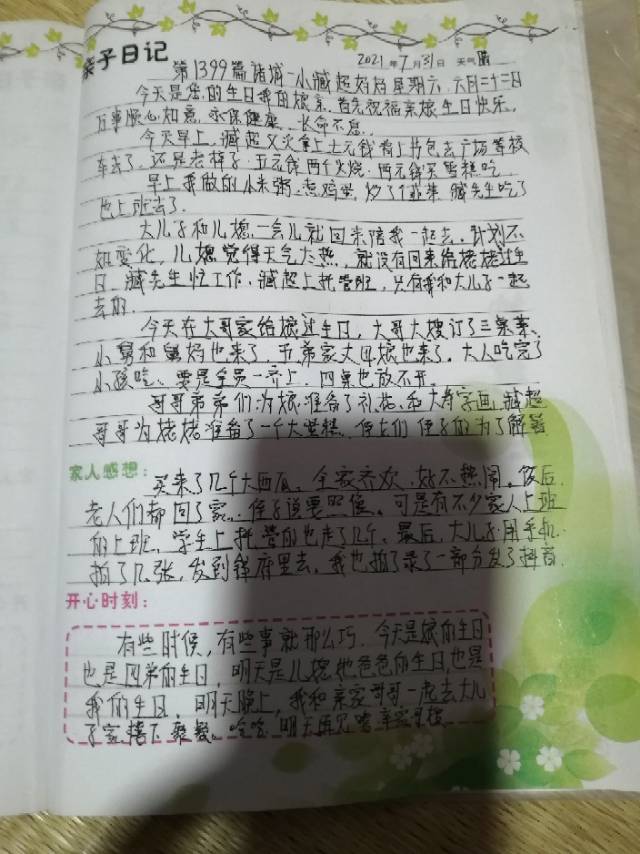 亲子日记
2021年7月31日 天气晴
第1399篇 诸城一小臧超妈妈 星期六 六月二十二日
今天是您的生日我的娘亲，首先祝福亲娘生日快乐，
万事顺心如意，永保健康，长命不息。
今天早上，臧超又火拿上七元钱背上书包去广场等校
车去了，还是老样子，五元钱两个火烧，两元钱买雪糕吃
早上我做的小米粥，煮鸡蛋，炒了个韭菜 臧先生吃了
也上班去了。
大儿子和儿媳一会儿就回来陪我一起去，计划不
如变化，儿媳觉得天气太热，就没有回来给姥姥过生
日，臧先生忙工作，臧超上托管班，只有我和大儿子一起
去的。
今天在大哥家给娘过生日，大哥大嫂订了三桌菜、
小舅和舅妈也来了，五弟家大母娘也来了。大人吃完了
小孩吃、要是全员一齐上，四桌也放不开。
哥哥弟弟们为娘准备了礼花，和大寿字画，臧超
哥哥为姥姥准备了一个大蛋糕，侄女们 侄子们为了解暑
家人感想：
买来了几个大西瓜，全家齐欢，好不热闹。饭后，
老人们都回了家，侄子说要照像，可是有不少家人上班
的上班，学生上托管的也走了几个，最后，大儿子用手机
拍了几张，发到群府里去，我也拍了录了一部分发了抖音
开心时刻：
有些时候，有些事就那么巧，今天是娘的生日
也是四弟的生日，明天是儿媳她爸爸的生日，也是
我们的生日，明天晚上，我和亲家哥哥一起去大儿
子家 哈哈 明天再见